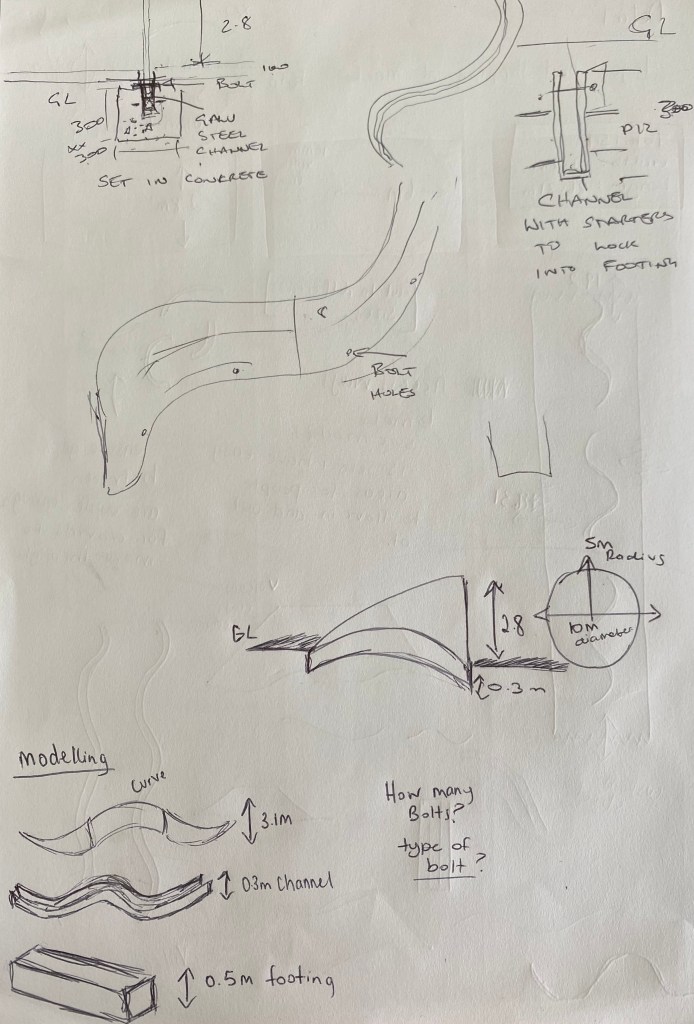 2.8
100
GL
BOLT
300
GALV
STEEL
CHANNEL
300
SET IN CONCRETE
GL
300
P12
CHANNEL
WITH STARTERS
TO LOCK
INTO FOOTING
BOLT
HOLES
5m
Radius
10m
diameter
GL
2.8
0.3 m
Modelling
Curve
3.1m
How many
Bolts?
type of
bolt?
03m Channel
0.5m footing